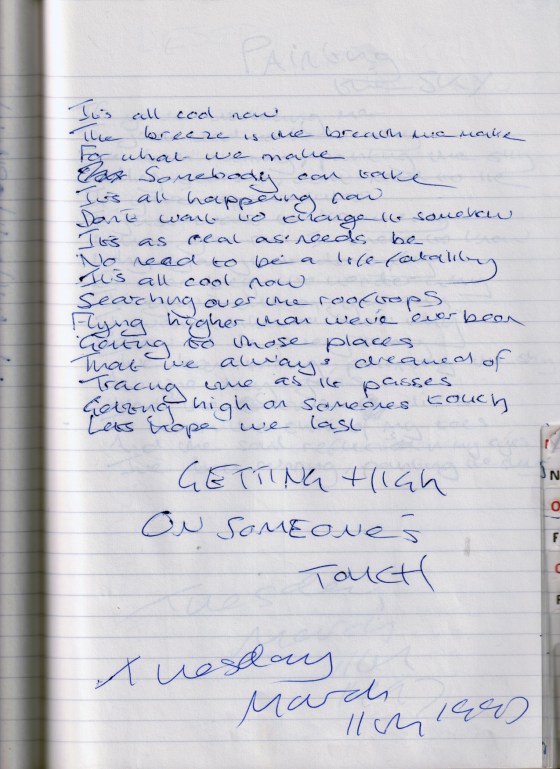 It's all cool now
The breeze is the breath we make
For what we make
Somebody can take
It's all happening now
Don't want to change it somehow
It's as real as needs be
No need to be a life fatality
It's all cool now
Searching over the rooftops
Flying higher than we've ever been
Getting to those places
That we always dreamed of
Tracing time as it passes
Getting high on someones touch
Lets hope we last
GETTING HIGH
ON SOMEONE'S
TOUCH
Tuesday
March
11th 1997